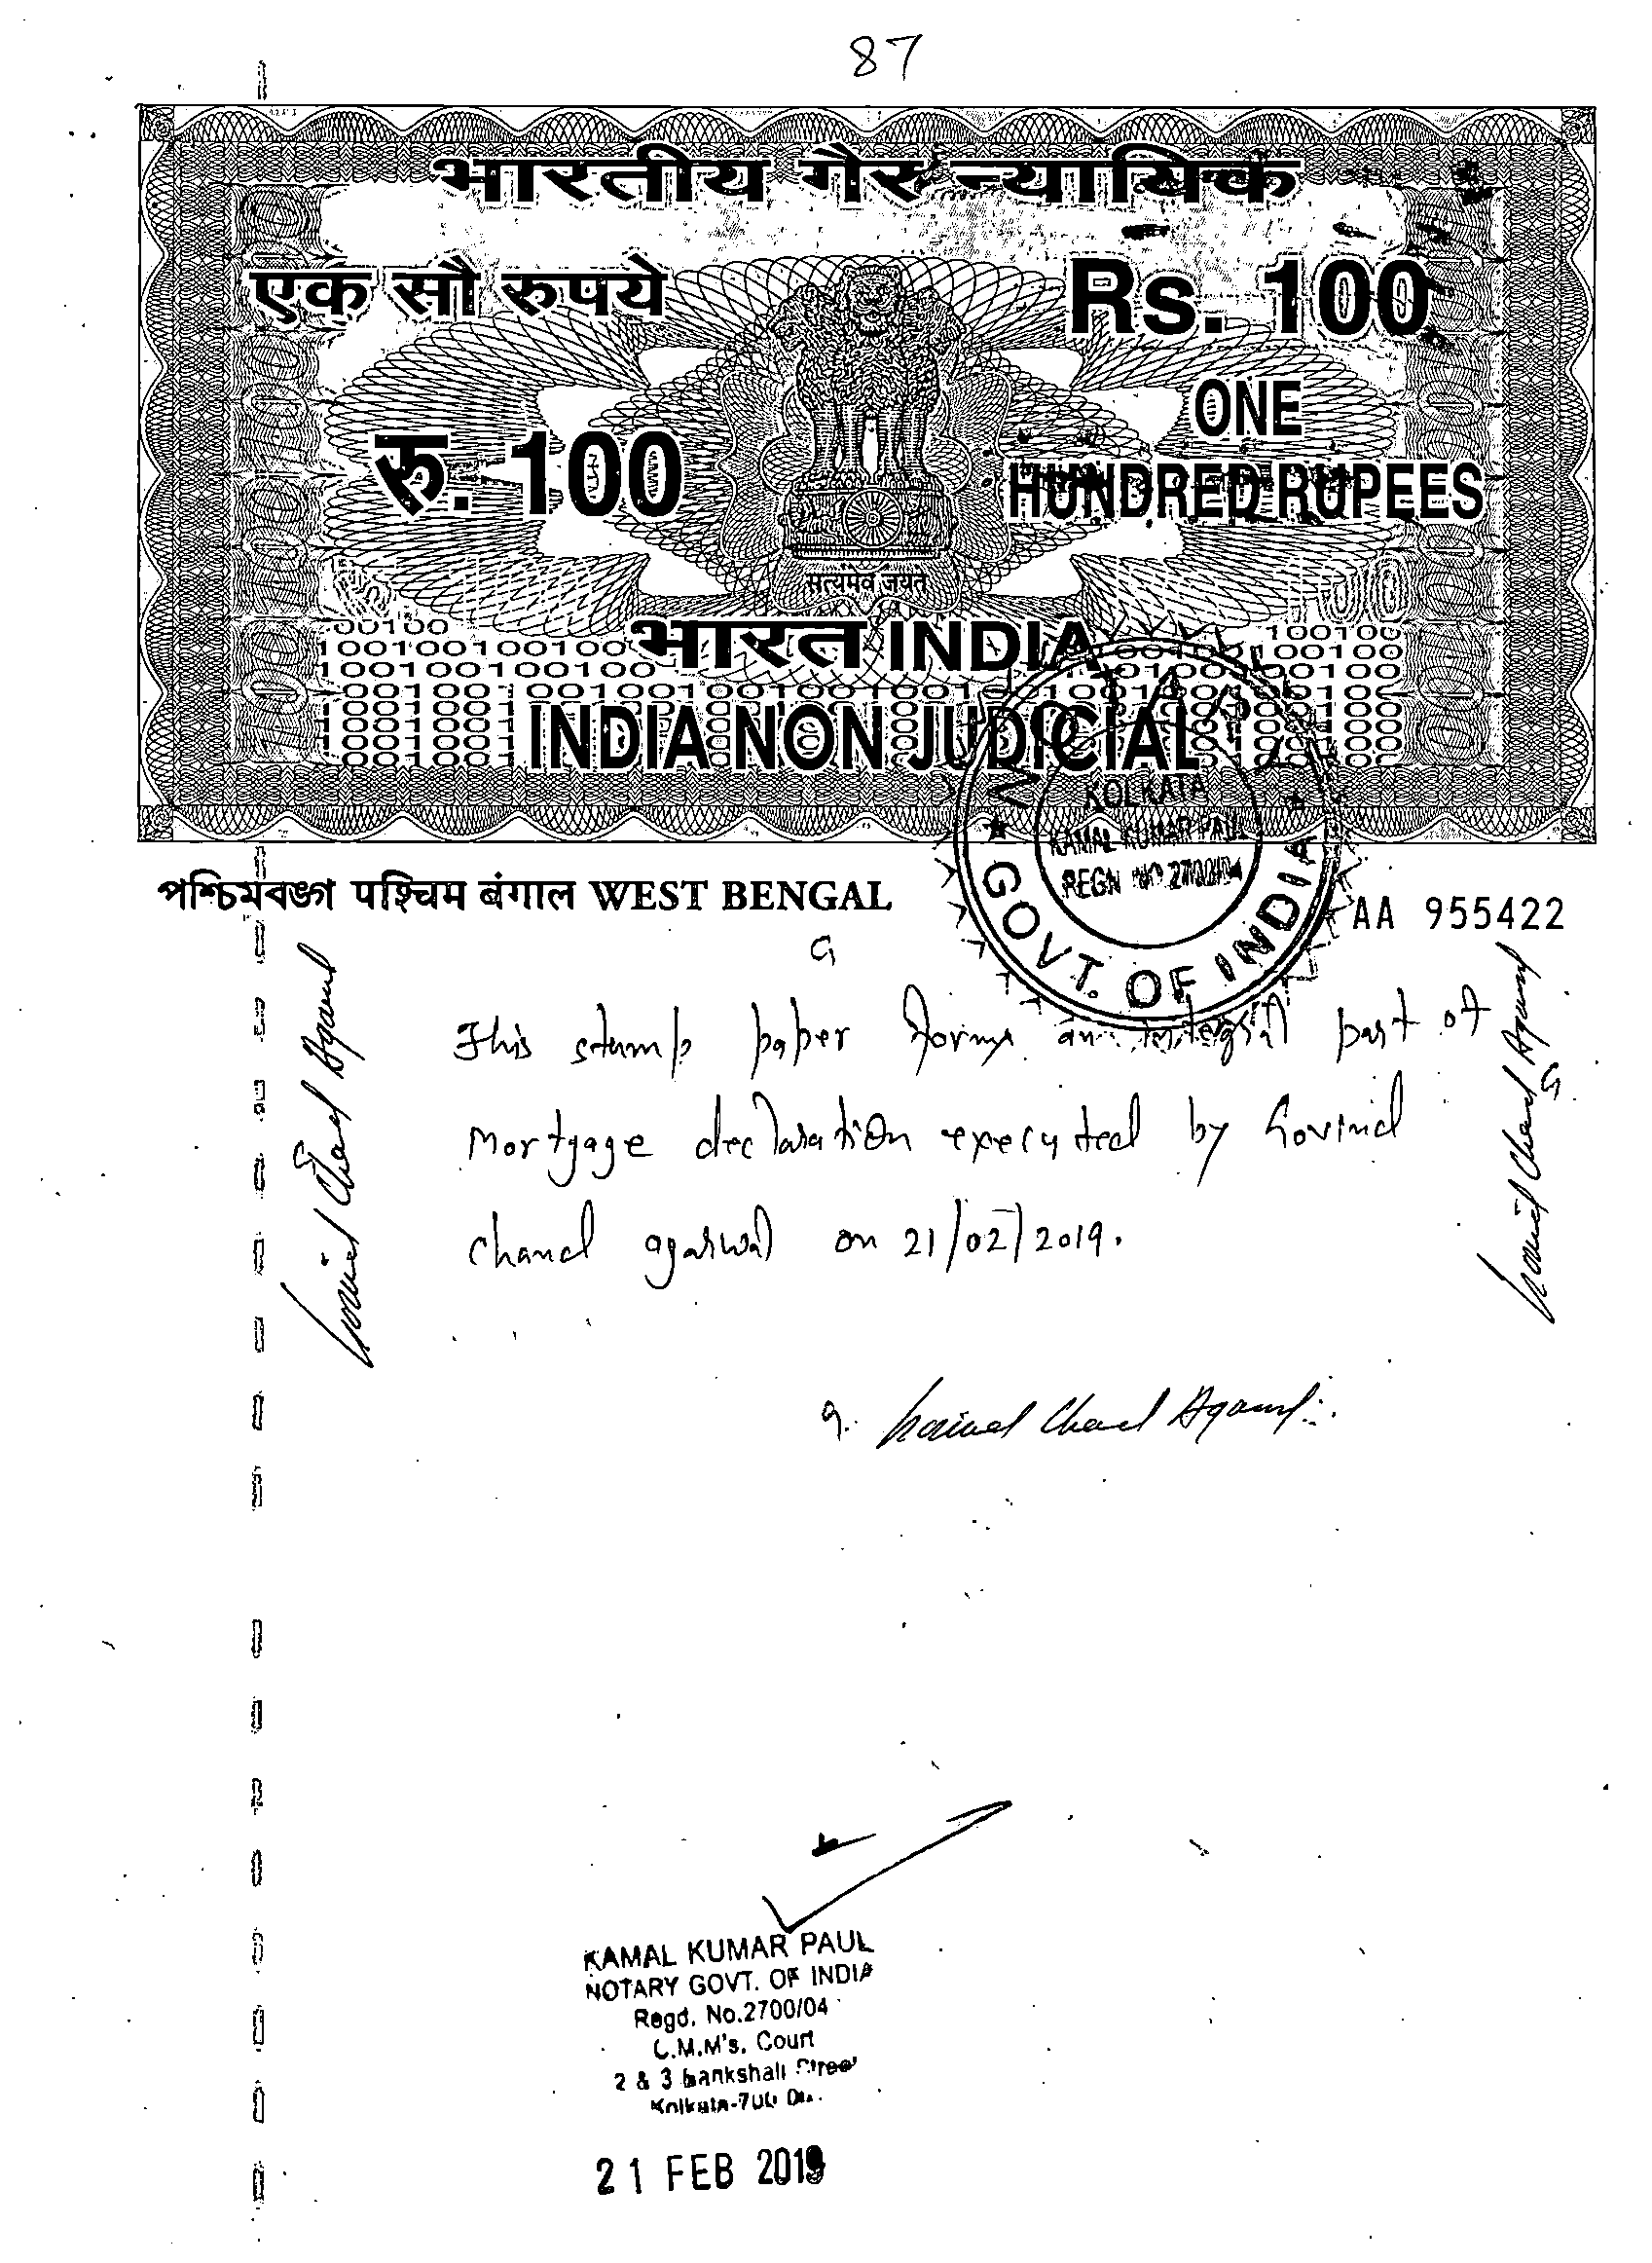 87
भारतीय गैर न्यायिक
एक सौ रुपये
Rs. 100
रु. 100
ONE
HUNDRED RUPEES
सत्यमेव जयते
भारत INDIA
INDIA NON JUDICIAL
KOLKATA
KAMAL KUMAR PAUL
REGN NO 2700/04
GOVT. OF INDIA
পশ্চিমবঙ্গ पश्चिम बंगाल WEST BENGAL
AA 955422
This stamp paper forms an integral part of
Mortgage declaration executed by Govind
chand agarwal on 21/02/2019.
Govind Chand Agarwal
Govind Chand Agarwal
Govind Chand Agarwal
KAMAL KUMAR PAUL
NOTARY GOVT. OF INDIA
Regd. No.2700/04
C.M.M's. Court
2 & 3 Bankshall Street
Kolkata-700
21 FEB 2019